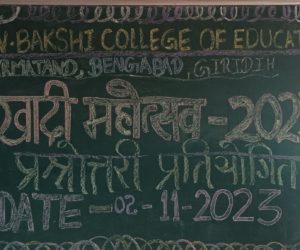 N. BAKSHI COLLEGE OF EDUCAT
RMATAND, BENGABAD, GIRIDIH
खादी महोत्सव - 202
प्रश्नोत्तरी प्रतियोगित
DATE - 02 - 11 - 2023